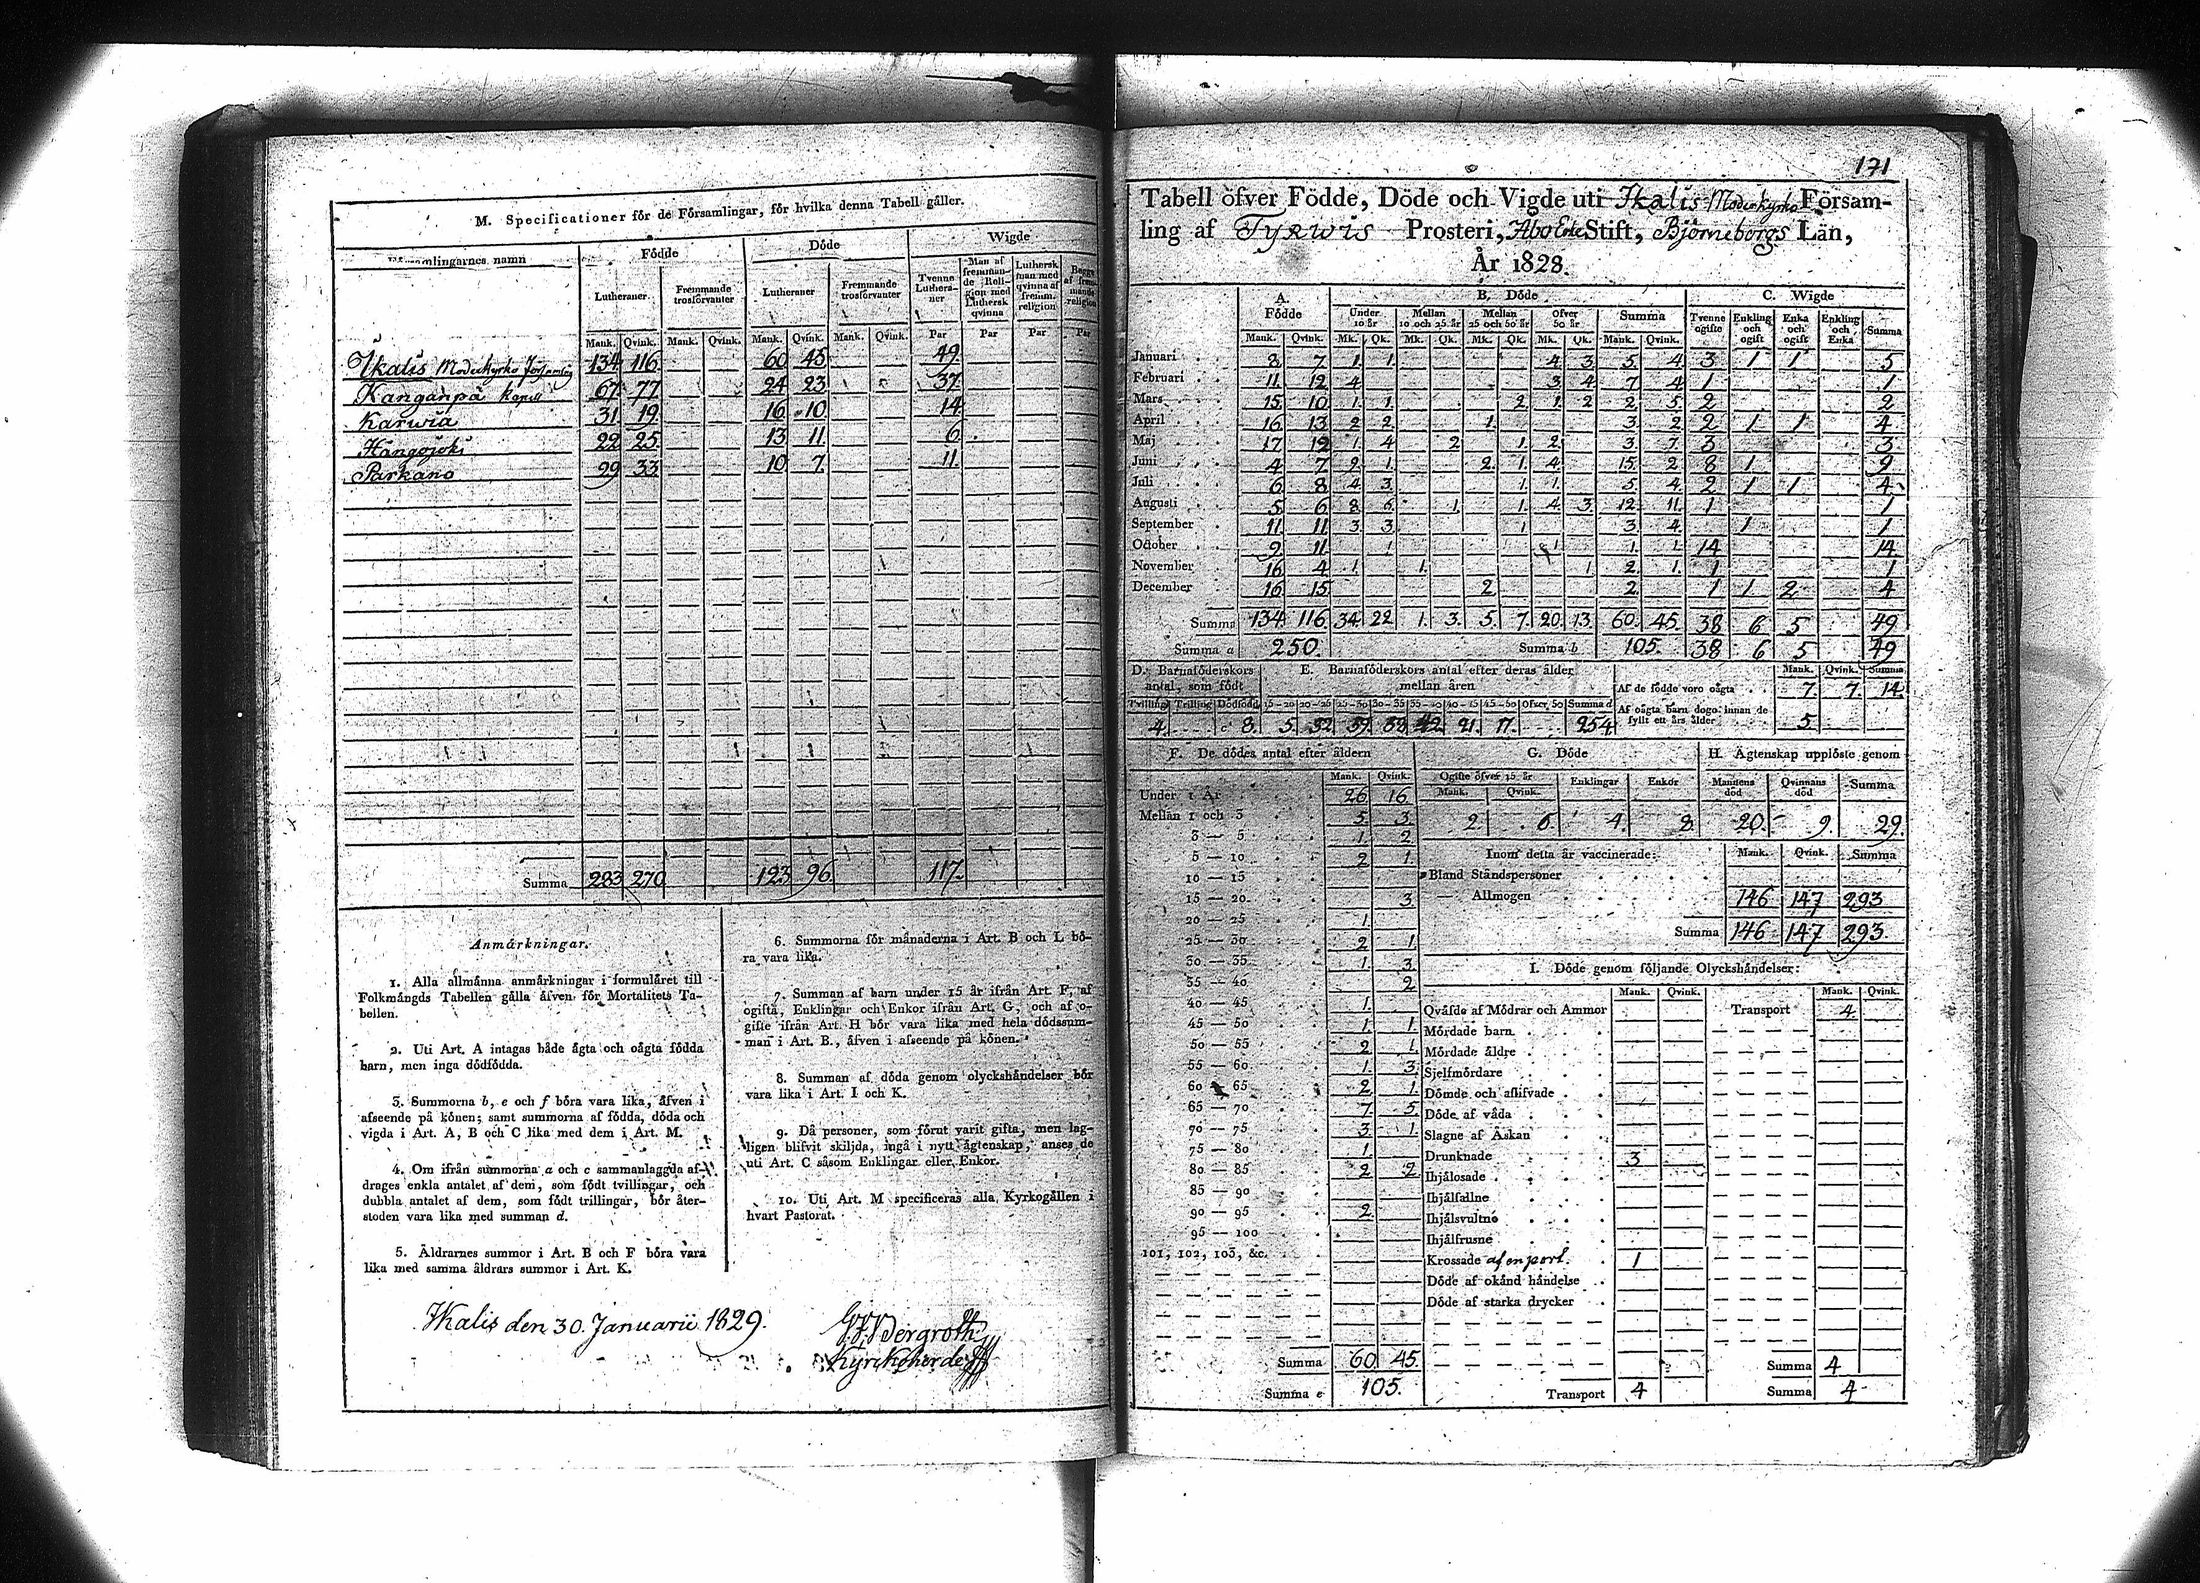 M. Specificationer för de Församlingar, för hvilka denna Tabell gäller.
Församlingarnes namn | Födde | Döde | Wigde
Lutheraner | Fremmande trosförvanter | Lutheraner | Fremmande trosförvanter | Tvenne Lutheraner | Man af fremmande Religion med Luthersk qvinna | Luthersk man med qvinna af fremm. religion | Begge af fremmande religion
Mank. Qvink. Mank. Qvink. Mank. Qvink. Mank. Qvink. Par Par Par Par
Ikalis Moderkyrko Församling 134 116 60 45 49
Kangänpä Kapell 67 77 24 23 37
Karwia 31 19 16 10 14
Hangöjoki 22 25 13 11 6
Parkano 29 33 10 7 11
Summa 283 270 123 96 117
Anmärkningar.
1. Alla allmänna anmärkningar i formuläret till
Folkmängds Tabellen gälla äfven för Mortalitets Ta-
bellen.
2. Uti Art. A intagas både ägta och oägta födda
barn, men inga dödfödda.
3. Summorna b, e och f böra vara lika, äfven i
afseende på könen; samt summorna af födda, döda och
vigda i Art. A, B och C lika med dem i Art. M.
4. Om ifrån summorna a och c sammanlaggda af-
drages enkla antalet af dem, som födt tvillingar, och
dubbla antalet af dem, som födt trillingar, bör åter-
stoden vara lika med summan d.
5. Åldrarnes summor i Art. B och F böra vara
lika med samma åldrars summor i Art. K.
6. Summorna för månaderna i Art. B och L bö-
ra vara lika.
7. Summan af barn under 15 år ifrån Art. F, af
ogifta, Enklingar och Enkor ifrån Art. G, och af o-
gifte ifrån Art. H bör vara lika med hela dödssum-
man i Art. B., äfven i afseende på könen.
8. Summan af döda genom olyckshändelser bör
vara lika i Art. I och K.
9. Då personer, som förut varit gifta, men lag-
ligen blifvit skiljda, ingå i nytt ägtenskap, anses de
uti Art. C såsom Enklingar eller Enkor.
10. Uti Art. M specificeras alla Kyrkogällen i
hvart Pastorat.
Ikalis den 30. Januarii 1829.
Bergroth
Kyrkoherde
171
Tabell öfver Födde, Döde och Vigde uti Ikalis Moderkyrko Försam-
ling af Tyrwis Prosteri, Åbo Erke Stift, Björneborgs Län,
År 1828.
A. Födde | B. Döde | C. Wigde
Under 10 år | Mellan 10 och 25 år | Mellan 25 och 50 år | Öfver 50 år | Summa | Tvenne ogifte | Enkling och ogift | Enka och ogift | Enkling och Enka | Summa
Mank. Qvink. Mk. Qk. Mk. Qk. Mk. Qk. Mk. Qk. Mank. Qvink.
Januari 8 7 1 1 4 3 5 4 3 1 1 5
Februari 11 12 4 3 4 7 4 1 1
Mars 15 10 1 1 2 1 2 2 5 2 2
April 16 13 2 2 1 3 2 2 1 1 4
Maj 17 12 1 4 2 1 2 3 7 3 3
Juni 4 7 2 1 2 1 4 15 2 8 1 9
Juli 6 8 4 3 1 1 5 4 2 1 1 4
Augusti 5 6 8 6 1 1 4 3 12 11 1 1
September 11 11 3 3 1 3 4 1 1
October 9 11 1 1 1 1 14 14
November 16 4 1 1 1 2 1 1 1
December 16 15 2 2 1 1 2 4
Summa 134 116 34 22 1 3 5 7 20 13 60 45 38 6 5 49
Summa a 250. Summa b 105. 38 6 5 49
D. Barnaföderskors antal, som födt
E. Barnaföderskors antal efter deras ålder mellan åren
Tvilling Trilling Dödfödd 15-20 20-25 25-30 30-35 35-40 40-45 45-50 Öfver 50 Summa d
4 8 5 32 39 38 42 21 17 254
Mank. Qvink. Summa
Af de födde voro oägta 7 7 14
Af oägta barn dogo innan de fyllt ett års ålder 5
F. De dödes antal efter åldern
Mank. Qvink.
Under 1 År 26 16
Mellan 1 och 3 5 3
3 — 5 1 2
5 — 10 2 1
10 — 15
15 — 20 3
20 — 25 1
25 — 30 2 1
30 — 35 1 3
35 — 40 2
40 — 45 1
45 — 50 1 1
50 — 55 2 1
55 — 60 1 3
60 — 65 2 1
65 — 70 7 5
70 — 75 3 1
75 — 80 1
80 — 85 2 2
85 — 90
90 — 95 2
95 — 100
101, 102, 103, &c.
Summa 60 45
Summa e 105.
G. Döde
Ogifte öfver 15 år | Enklingar | Enkor
Mank. Qvink.
2 6 4 8
H. Ägtenskap upplöste genom
Mannens död | Qvinnans död | Summa
20 9 29
Inom detta år vaccinerade: Mank. Qvink. Summa
Bland Ståndspersoner
— Allmogen 146 147 293
Summa 146 147 293
I. Döde genom följande Olyckshändelser:
Mank. Qvink. Mank. Qvink.
Qväfde af Mödrar och Ammor Transport 4
Mördade barn
Mördade äldre
Sjelfmördare
Dömde och aflifvade
Döde af våda
Slagne af Åskan
Drunknade 3
Ihjälosade
Ihjälfallne
Ihjälsvultne
Ihjälfrusne
Krossade af en port. 1
Döde af okänd händelse
Döde af starka drycker
Summa 4
Transport 4 Summa 4